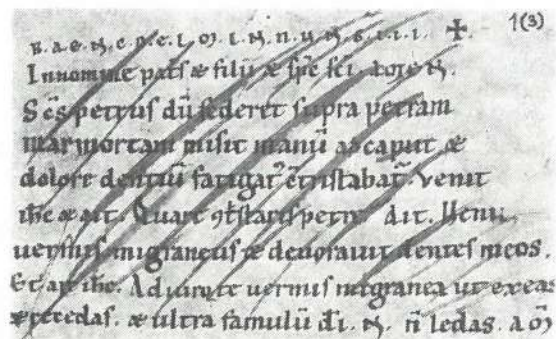 1(3)
✠.
Innomine pat̄s & filii & sp̄c s̄ci. N.
Sc̄s petrus dū sederet supra petram
marmoream misit manū ad caput &
dolore dentiū fatigat᷑ c̄tristabat᷑. Venit
ih̄c & ait. Quare ꝯt̄staris petre
uermis migraneus & deuorauit dentes meos.
Et ait ih̄c. Adiuro te uermis migranea ut exeas
& recedas. & ultra famulū dī. N. n̄ ledas.